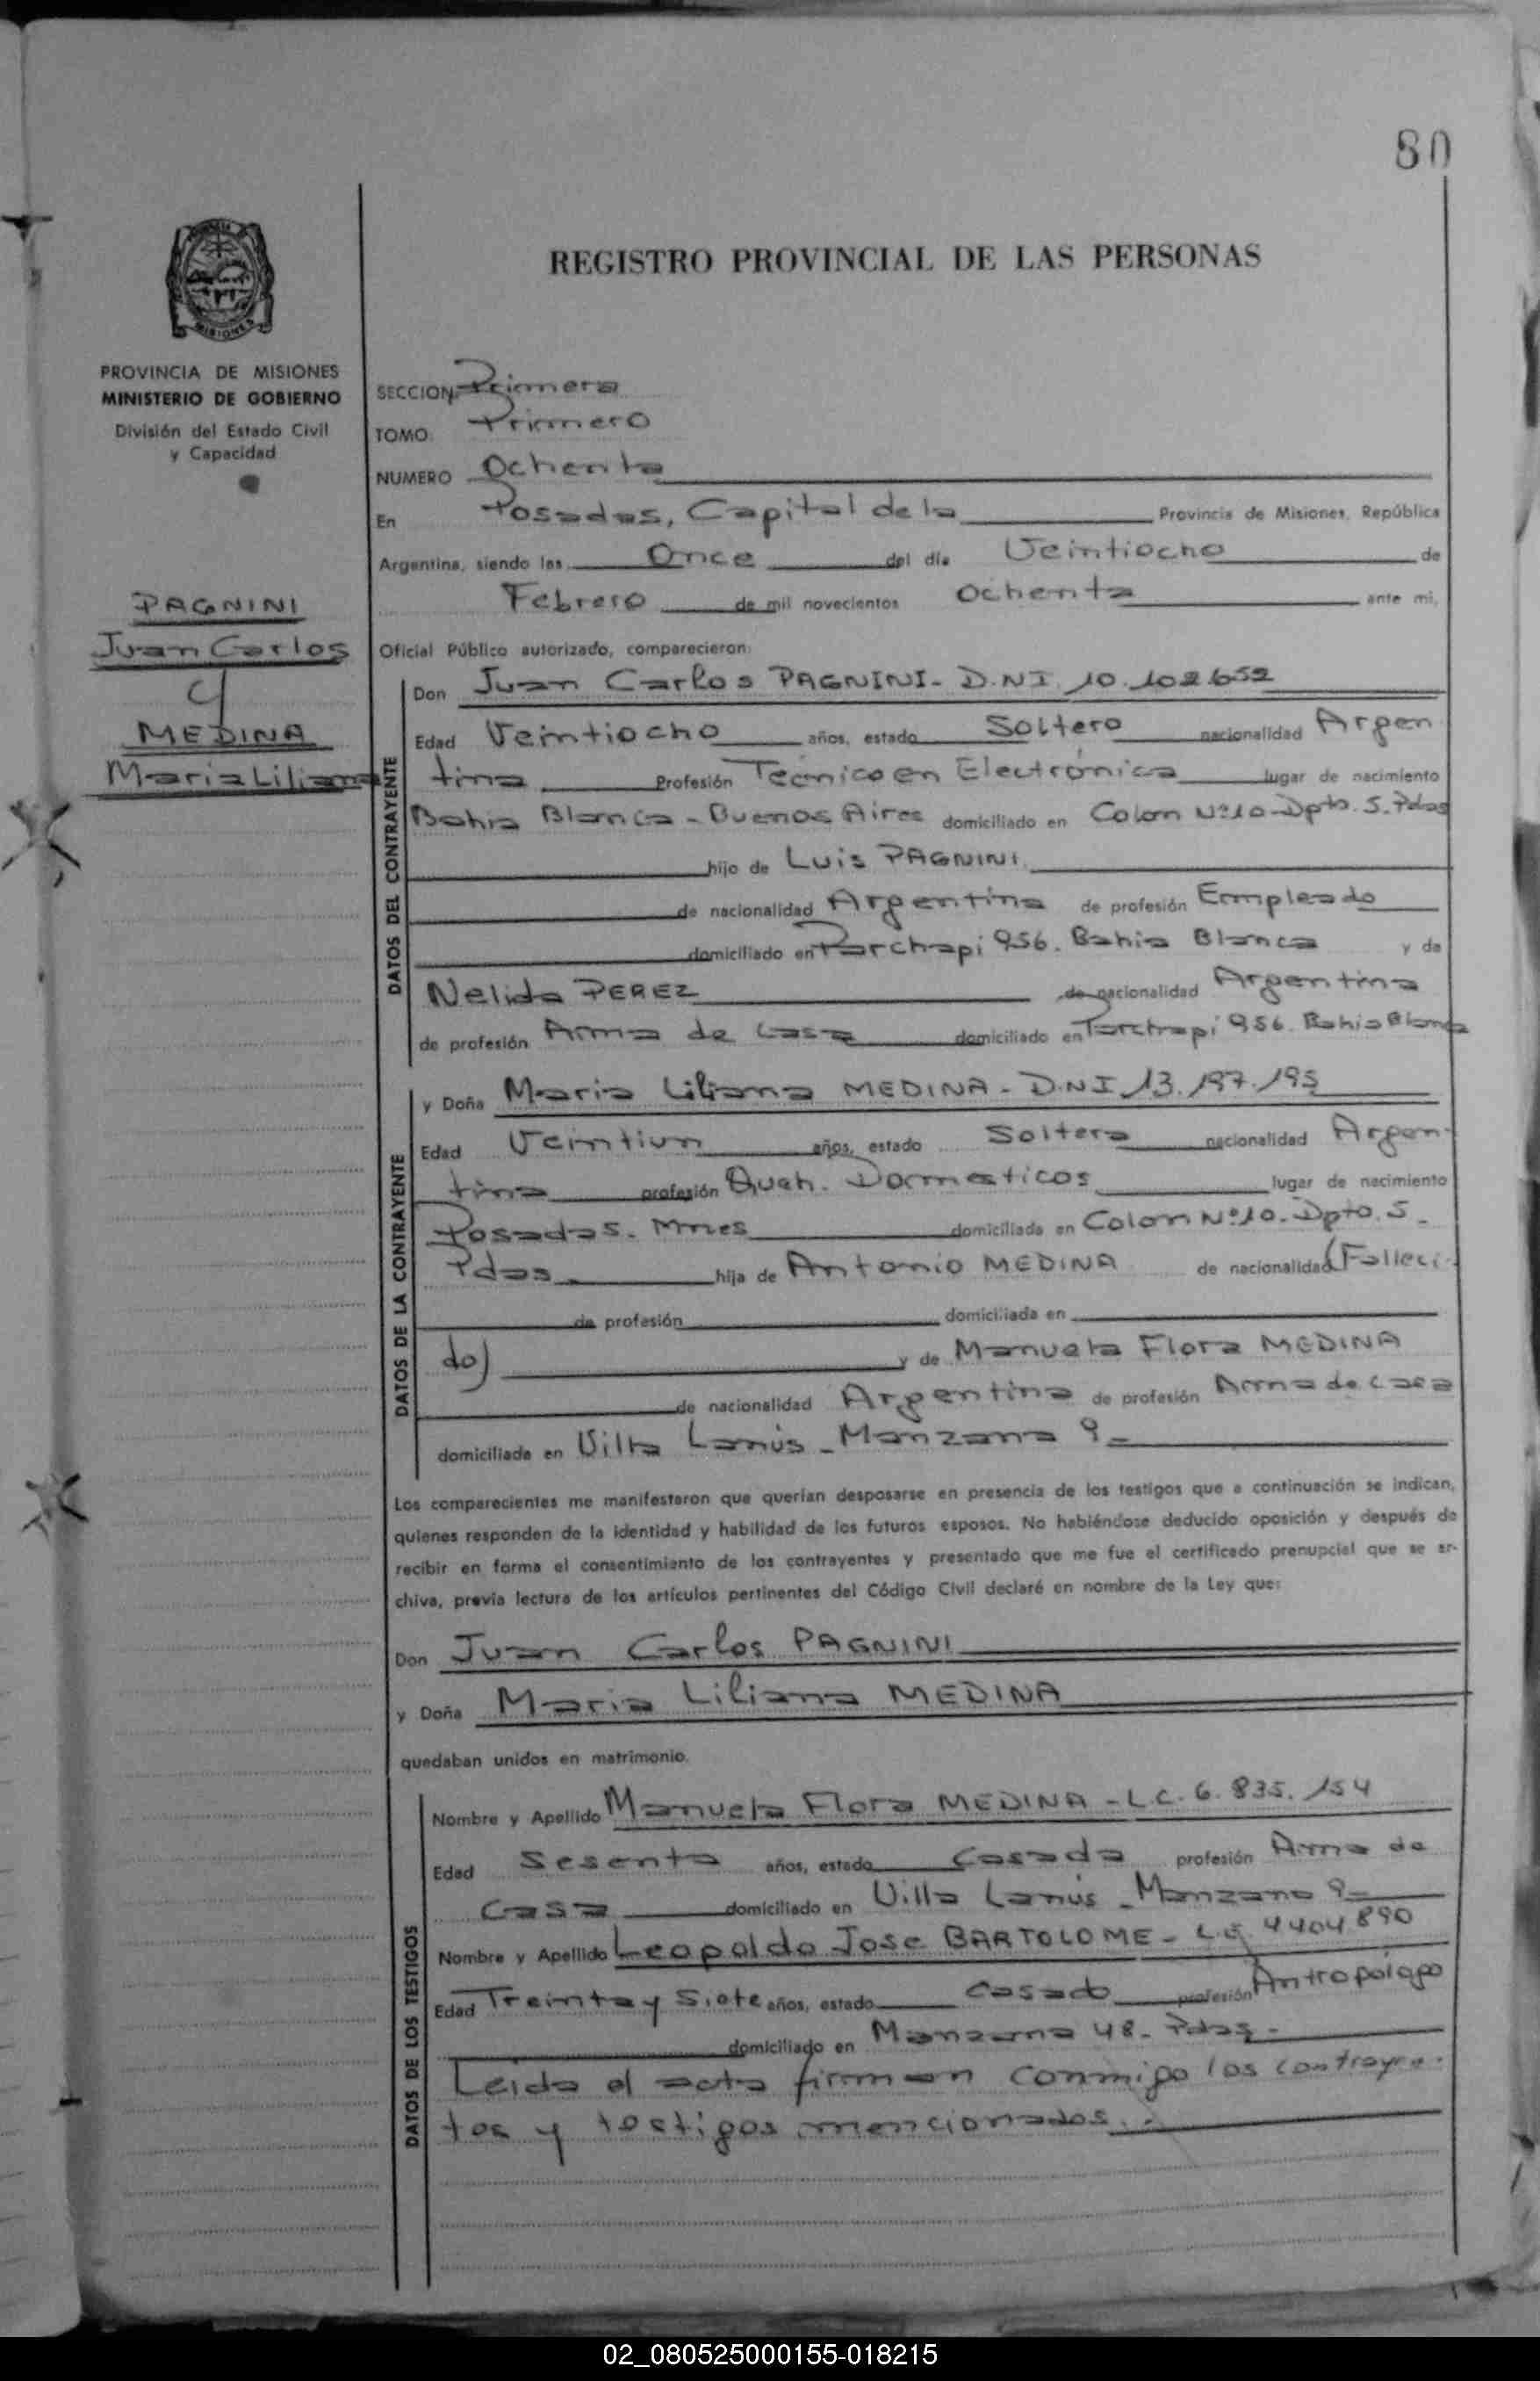 80
REGISTRO PROVINCIAL DE LAS PERSONAS
MISIONES
PROVINCIA DE MISIONES
MINISTERIO DE GOBIERNO
División del Estado Civil
y Capacidad
PAGNINI
Juan Carlos
y
MEDINA
Maria Liliana
SECCION Primera
TOMO Primero
NUMERO Ochenta
En Posadas, Capital de la Provincia de Misiones, República
Argentina, siendo las Once del día Veintiocho de
Febrero de mil novecientos Ochenta ante mi,
Oficial Público autorizado, comparecieron:
DATOS DEL CONTRAYENTE
Don Juan Carlos PAGNINI - D.N.I. 10.102.652
Edad Veintiocho años, estado Soltero nacionalidad Argen
tina Profesión Tecnico en Electrónica lugar de nacimiento
Bahia Blanca - Buenos Aires domiciliado en Colon Nº 10 - Dpto. 5. Pdas
hijo de Luis PAGNINI
de nacionalidad Argentina de profesión Empleado
domiciliado en Parchapi 956. Bahia Blanca y de
Nelida PEREZ de nacionalidad Argentina
de profesión Ama de Casa domiciliado en Parchapi 956. Bahia Blanca
DATOS DE LA CONTRAYENTE
y Doña Maria Liliana MEDINA - D.N.I 13.197.195
Edad Veintiun años, estado Soltera nacionalidad Argen-
tina profesión Queh. Domesticos lugar de nacimiento
Posadas. Mnes domiciliada en Colon Nº 10. Dpto. 5 -
Pdas hija de Antonio MEDINA de nacionalidad (Falleci-
de profesión domiciliada en
do) y de Manuela Flora MEDINA
de nacionalidad Argentina de profesión Ama de casa
domiciliada en Villa Lanús - Manzana 9 -
Los comparecientes me manifestaron que querían desposarse en presencia de los testigos que a continuación se indican,
quienes responden de la identidad y habilidad de los futuros esposos. No habiéndose deducido oposición y después de
recibir en forma el consentimiento de los contrayentes y presentado que me fue el certificado prenupcial que se ar-
chiva, previa lectura de los artículos pertinentes del Código Civil declaré en nombre de la Ley que:
Don Juan Carlos PAGNINI
y Doña Maria Liliana MEDINA
quedaban unidos en matrimonio.
DATOS DE LOS TESTIGOS
Nombre y Apellido Manuela Flora MEDINA - L.C. 6.835.154
Edad Sesenta años, estado Casada profesión Ama de
Casa domiciliado en Villa Lanús - Manzana 9 -
Nombre y Apellido Leopoldo Jose BARTOLOME - L.E. 4404890
Edad Treinta y Siete años, estado Casado profesión Antropólogo
domiciliado en Manzana 48 - Pdas -
Leida el acta firman conmigo los contrayen-
tes y testigos mencionados. -
02_080525000155-018215